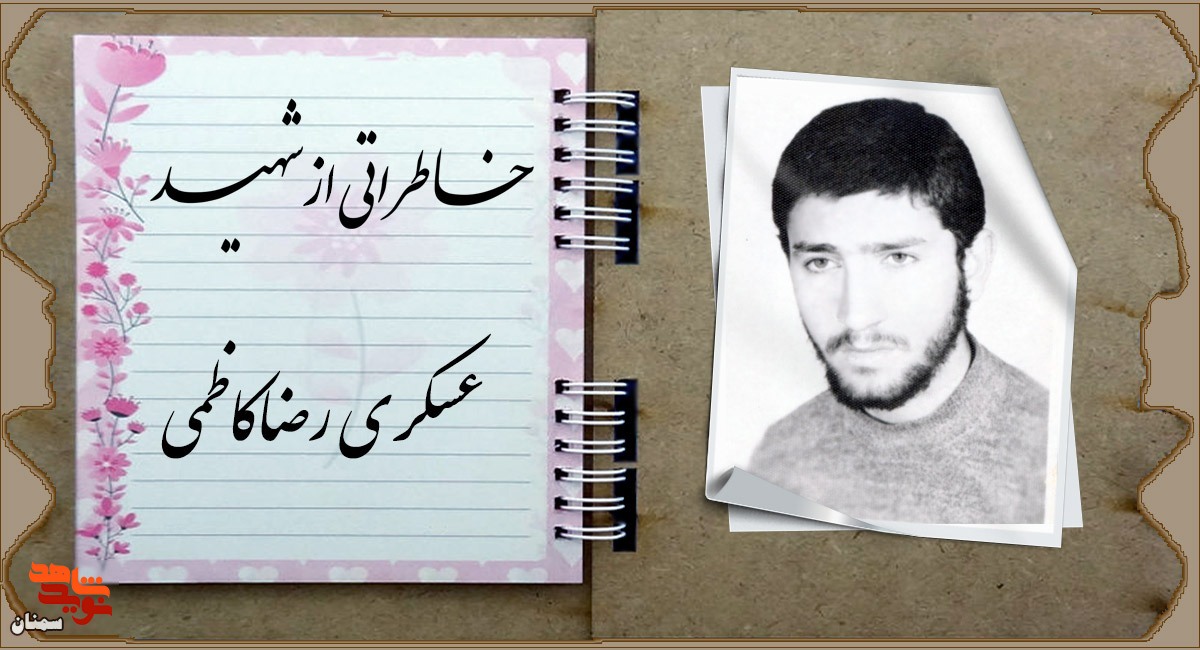 خاطراتی از شهید
عسکری رضاکاظمی
نوید شاهد
سمنان